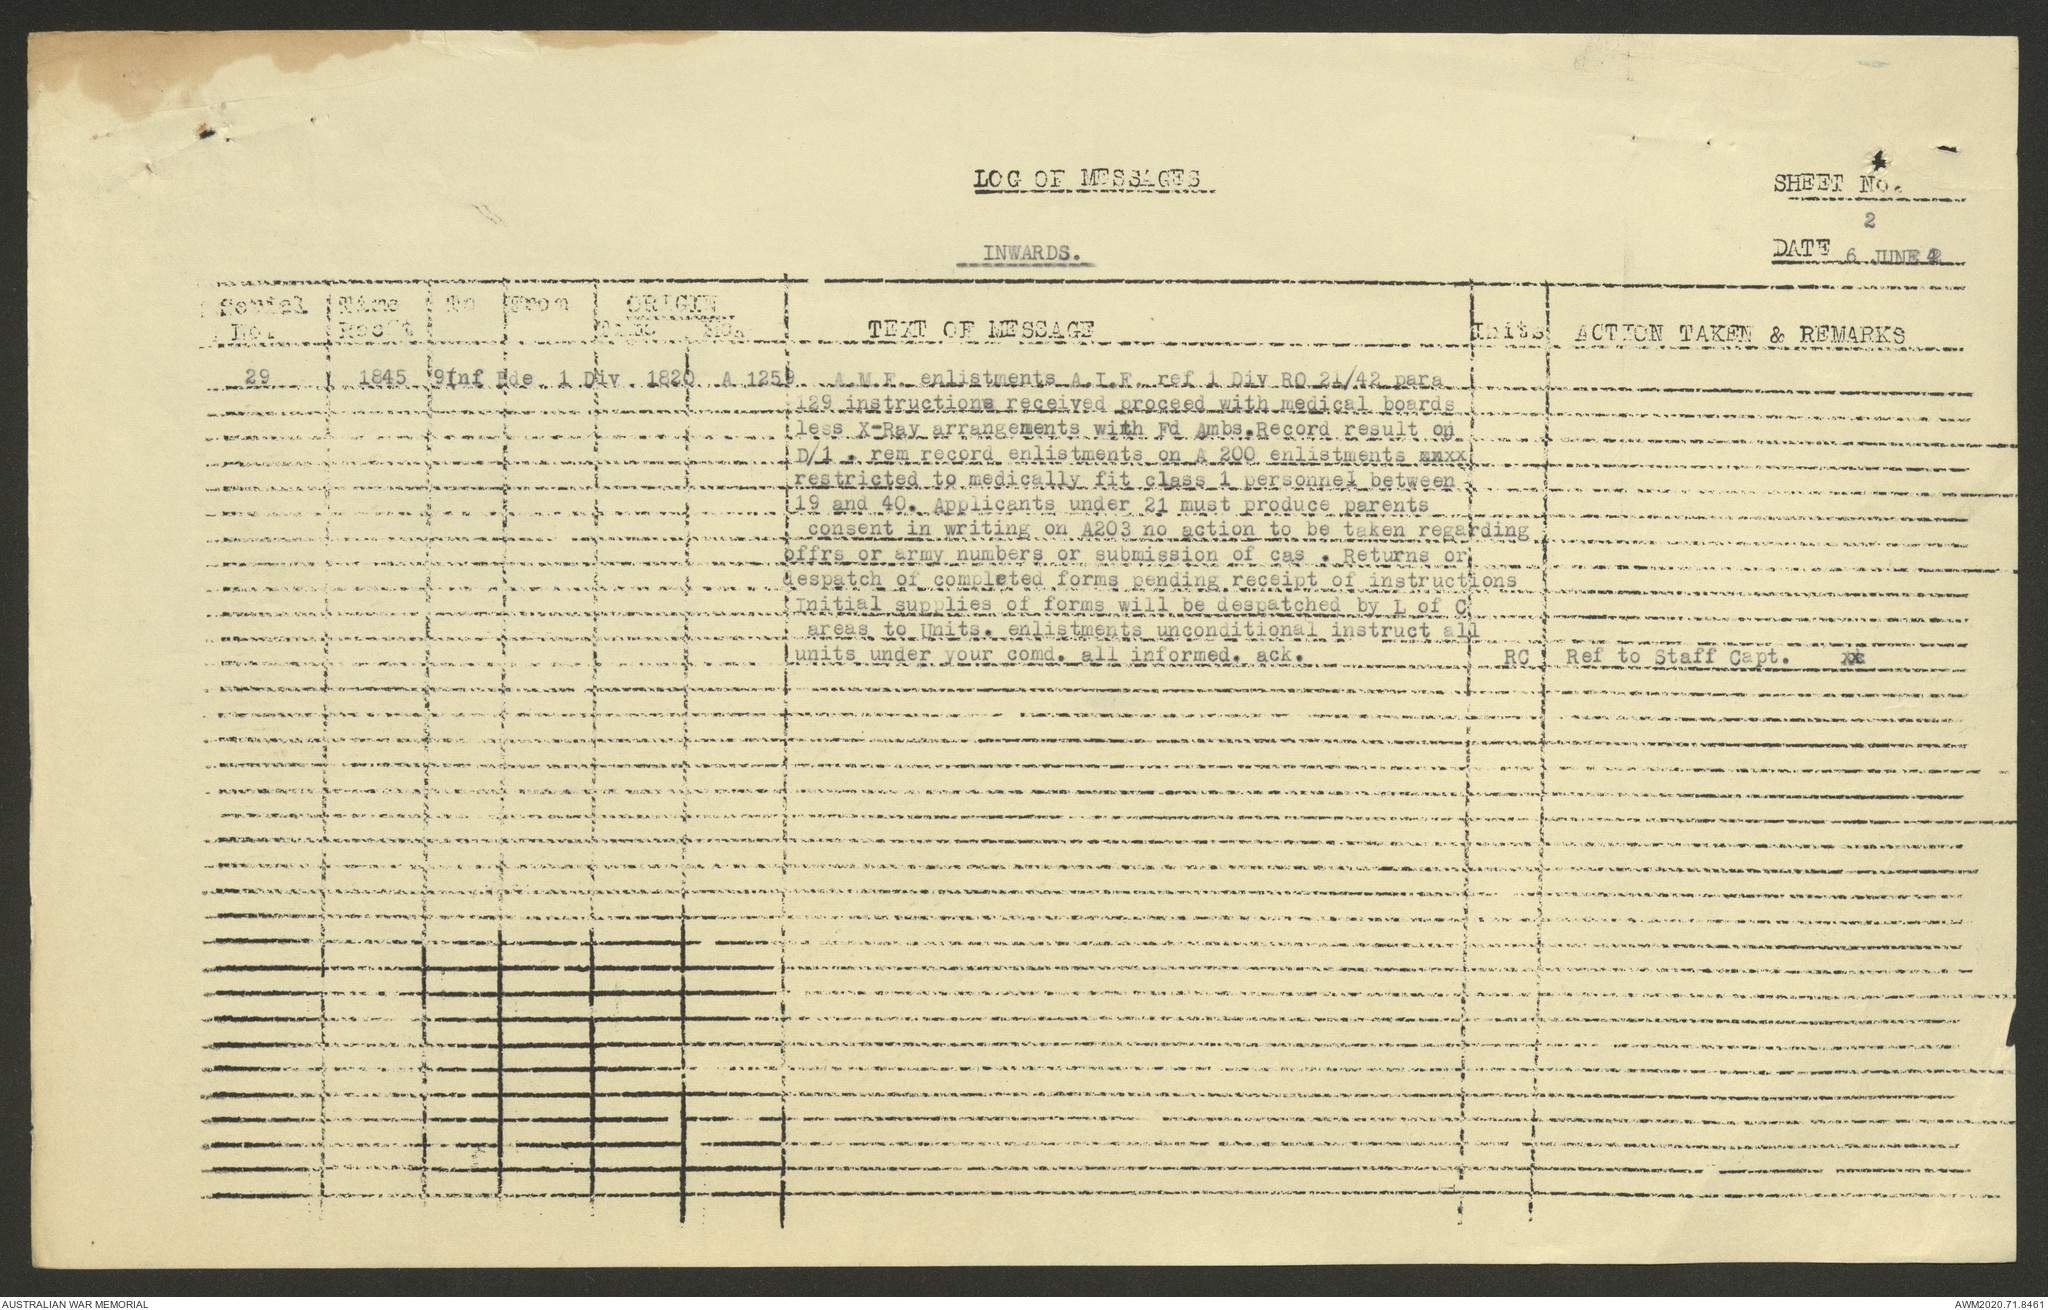 LOG OF MESSAGES
SHEET No.
2
INWARDS.
DATE 6 JUNE 42
Serial Time To From ORIGIN
No. Rec't Time No. TEXT OF MESSAGE Inits ACTION TAKEN & REMARKS
29 1845 9Inf Bde 1 Div 1820 A 1259 A.M.F. enlistments A.I.F. ref 1 Div RO 21/42 para
129 instructions received proceed with medical boards
less X-Ray arrangements with Fd Ambs.Record result on
D/1 . rem record enlistments on A 200 enlistments xnxx
restricted to medically fit class 1 personnel between
19 and 40. Applicants under 21 must produce parents
consent in writing on A203 no action to be taken regarding
offrs or army numbers or submission of cas . Returns or
despatch of completed forms pending receipt of instructions
Initial supplies of forms will be despatched by L of C
areas to Units. enlistments unconditional instruct all
units under your comd. all informed. ack. RC Ref to Staff Capt. xx
AUSTRALIAN WAR MEMORIAL
AWM2020.71.8461